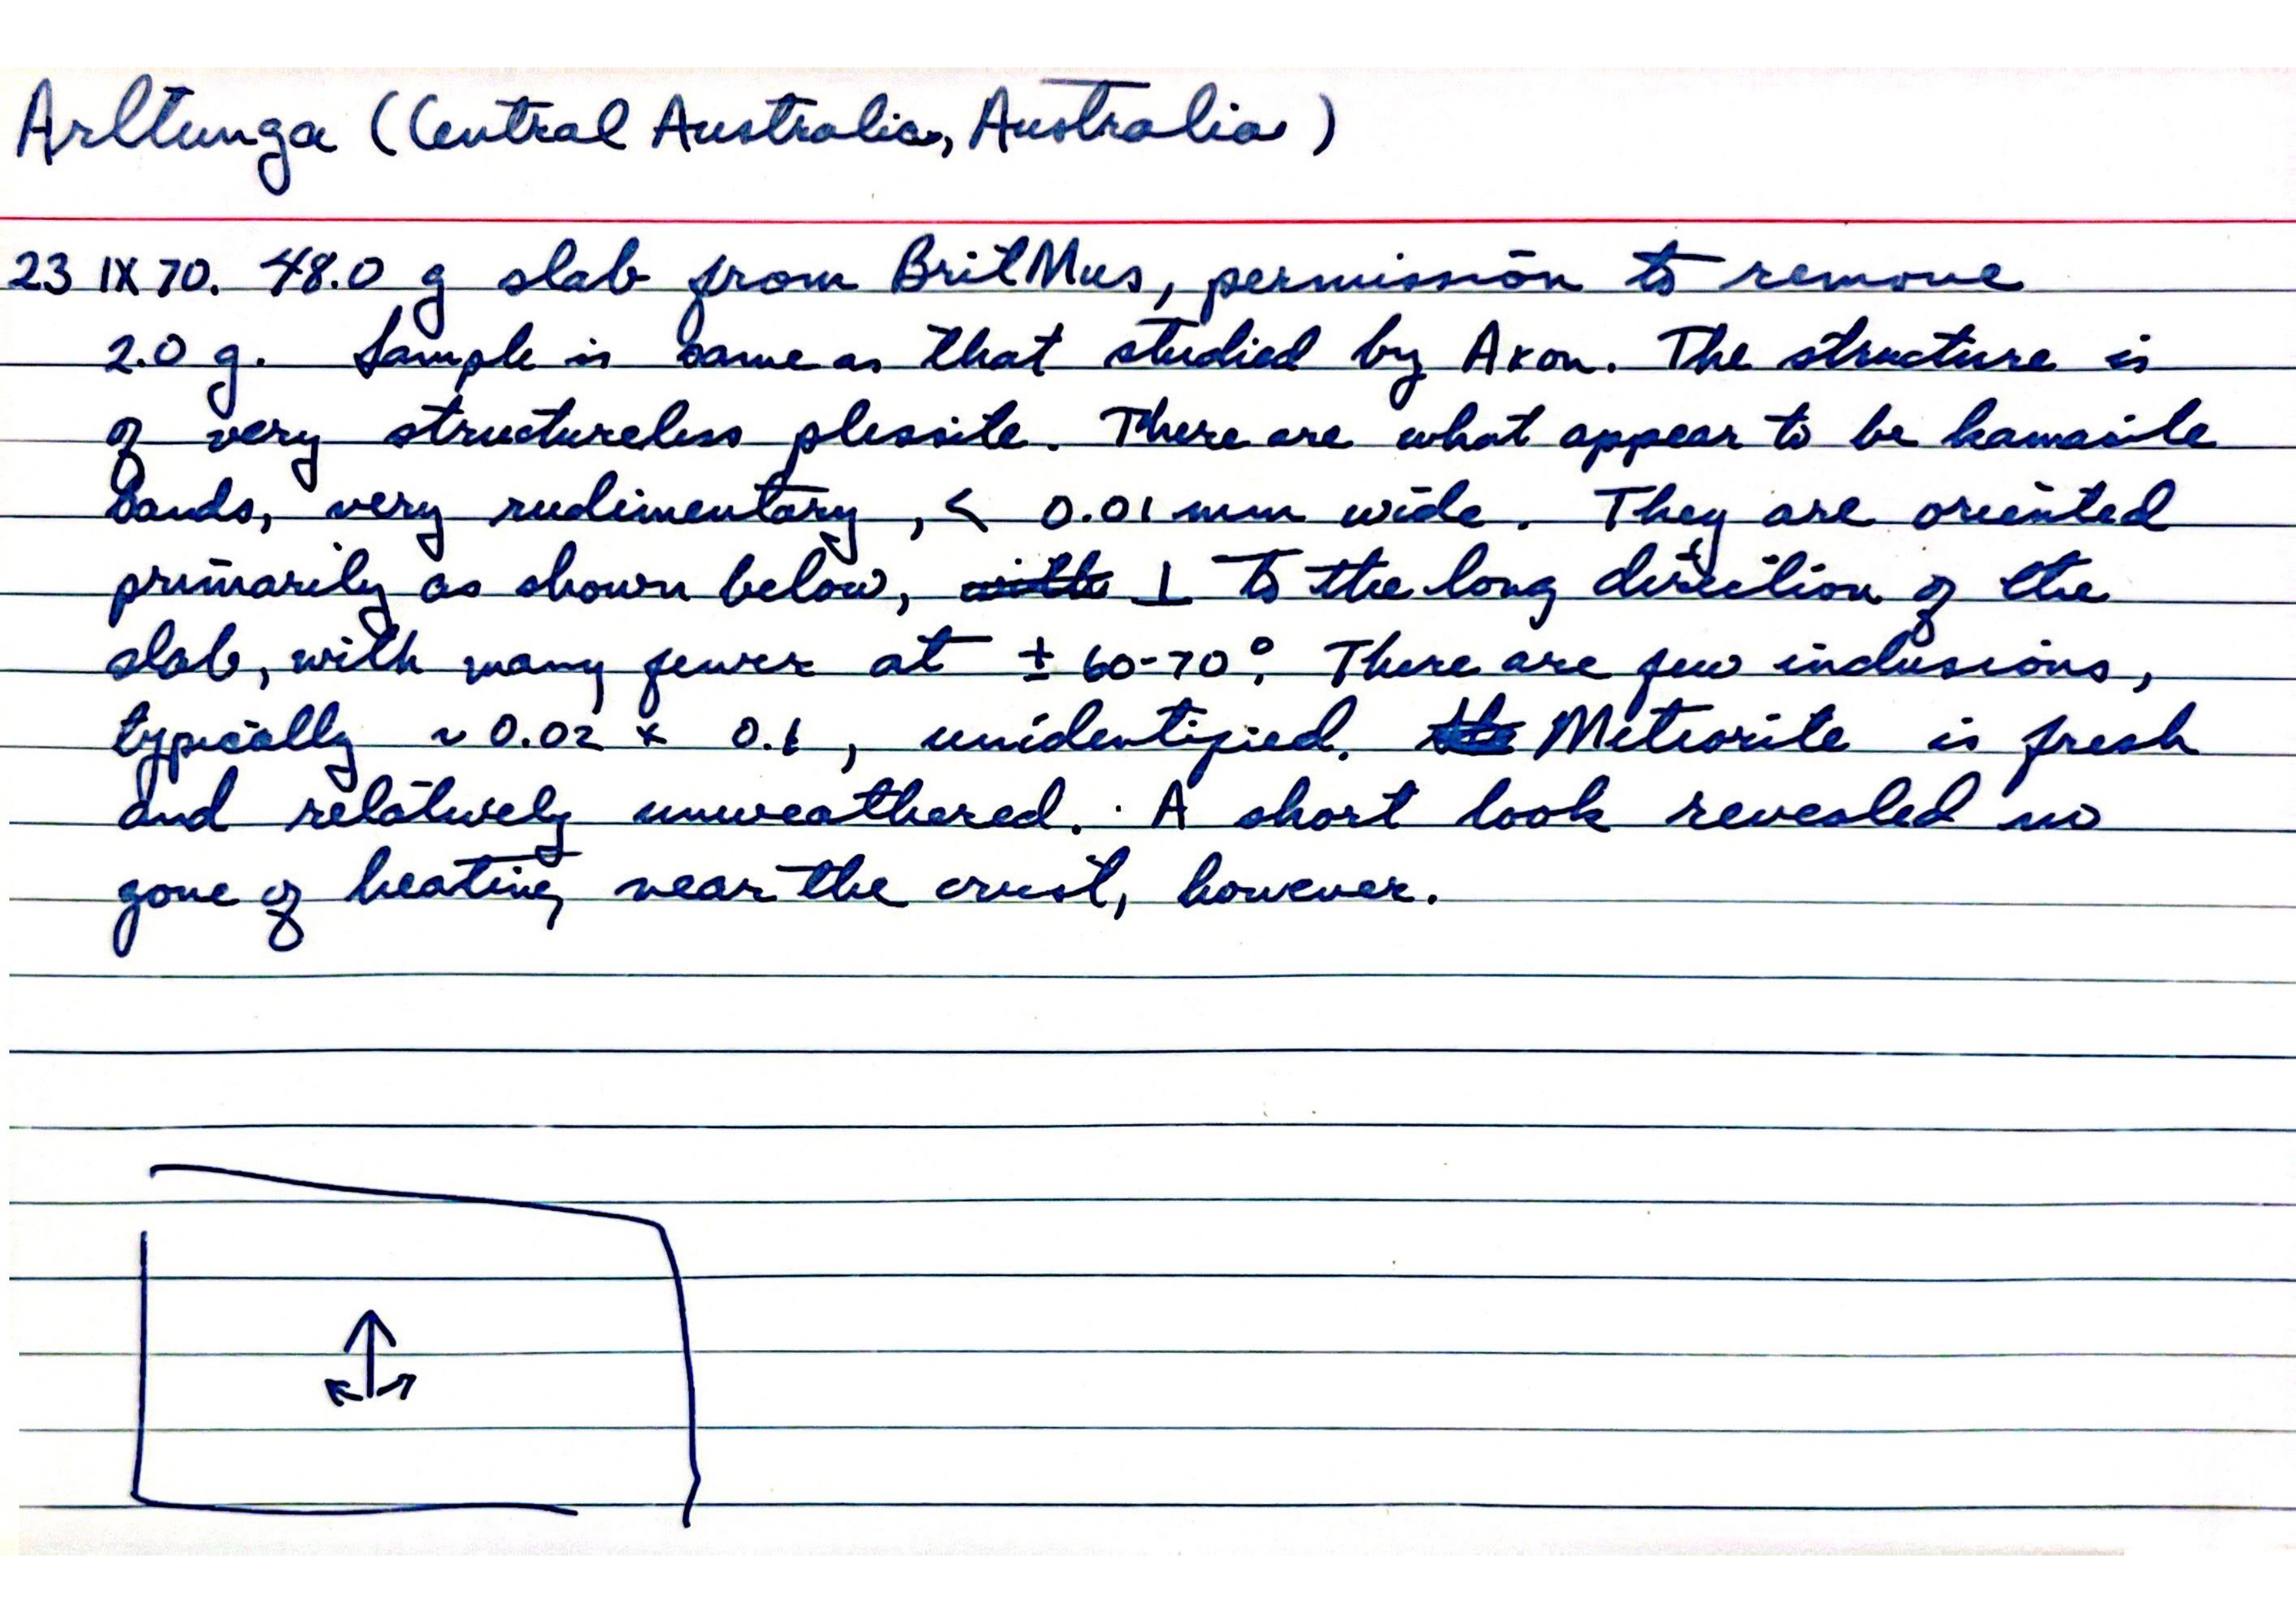 Arltunga (Central Australia, Australia)
23 IX 70. 48.0 g slab from BritMus, permission to remove
2.0 g. Sample is same as that studied by Axon. The structure is
of very structureless plessite. There are what appear to be kamacite
bands, very rudimentary, < 0.01 mm wide. They are oriented
primarily as shown below, ⊥ to the long direction of the
slab, with many fewer at ± 60-70°. There are few inclusions,
typically ~ 0.02 x 0.1, unidentified. Meteorite is fresh
and relatively unweathered. A short look revealed no
zone of heating near the crust, however.